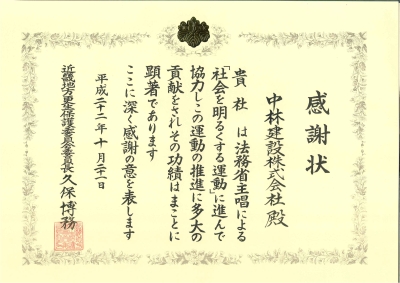 感謝状
中林建設株式会社 殿
貴社は法務省主唱による
「社会を明るくする運動」に進んで
協力しこの運動の推進に多大の
貢献をされその功績はまことに
顕著であります
ここに深く感謝の意を表します
平成二十二年十月二十一日
近畿地方更生保護委員会委員長 久保博務